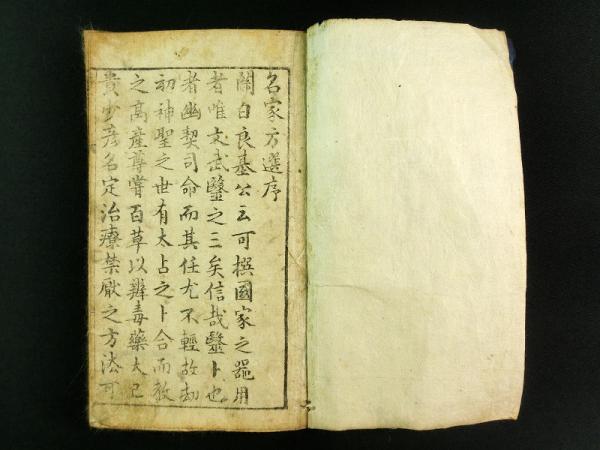 名家方選序
關白良基公云可撰國家之器用
者唯文武醫之三矣信哉醫卜也
者幽契司命而其任尤不輕故劫
初神聖之世有太占之卜合而教
之高產尊嘗百草以辨毒藥大己
貴少彥名定治療禁厭之方法可